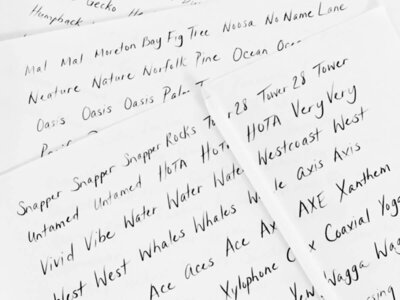 Gecko
Humpback
Mal Mal Moreton Bay Fig Tree Noosa No Name Lane
Neature Nature Norfolk Pine Ocean
Oasis Oasis Oasis Palm
Snapper Snapper Snapper Rocks 28 Tower 28 Tower
Untamed Untamed HOTA HOTA Very Very
Vivid Vibe Water Water Westcoast West
West West Whales Whales axis Axis
Ace Aces Ace AXE Xanthem
Xylophone Coaxial Yoga
Wagga